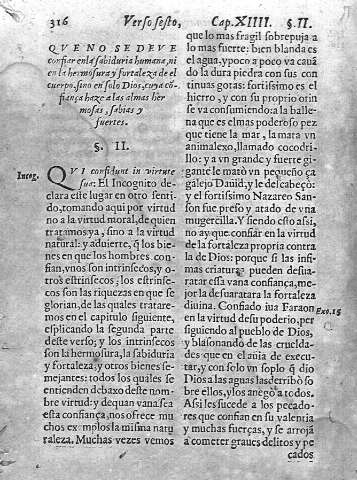 316 Verso sesto, Cap. XIIII. §. II.
QVE NO SE DEVE
confiar en la sabiduria humana, ni
en la hermosura y fortaleza de el
cuerpo, sino en solo Dios, cuya cõ-
fiança haze a las almas her
mosas, sabias y
fuertes.
§. II.
Incog.
QVI confidunt in virtute
sua: El Incognito de-
clara este lugar en otro sentido,
tomando aqui por virtud
no a la virtud moral, de quien
tratamos ya, sino a la virtud
natural: y aduierte, q̃ los bie-
nes en que los hombres con-
fian, vnos son intrinsecos, y o-
tros estrinsecos; los estrinse-
cos son las riquezas en que se
glorian, de las quales tratare-
mos en el capitulo siguiente,
esplicando la segunda parte
deste verso; y los intrinsecos
son la hermosura, la sabiduria
y fortaleza, y otros bienes se-
mejantes: todos los quales se
entienden debaxo deste nom-
bre virtud: y de quan vana sea
esta confiança, nos ofrece mu
chos exemplos la misma natu
raleza. Muchas vezes vemos
que lo mas fragil sobrepuja a
lo mas fuerte: bien blanda es
el agua, y poco a poco va cauã
do la dura piedra con sus con
tinuas gotas: fortissimo es el
hierro, y con su proprio orin
se va consumiendo: a la balle-
na que es el mas poderoso pez
que tiene la mar, la mata vn
animalexo, llamado cocodri-
llo: y a vn grande y fuerte gi-
gante le matò vn pequeño ça
galejo Dauid, y le descabeçò:
y el fortissimo Nazareo San-
son fue preso y atado de vna
mugercilla. Y siendo esto assi,
no ay que confiar en la virtud
de la fortaleza propria contra
la de Dios: porque si las infi-
mas criaturas pueden desua-
ratar essa vana confiança, me-
jor la desuaratara la fortaleza
diuina. Confiado iua Faraon
Exo. 15
en la virtud de su poderio, per
siguiendo al pueblo de Dios,
y blasonando de las crueldа-
des que en el auia de execu-
tar, y con solo vn soplo q̃ dio
Dios a las aguas las derribò so
bre ellos, y los anegò a todos.
Assi les sucede a los pecado-
res que confian en su valentia
y muchas fuerças, y se arrojã
a cometer graues delitos y pe
cados